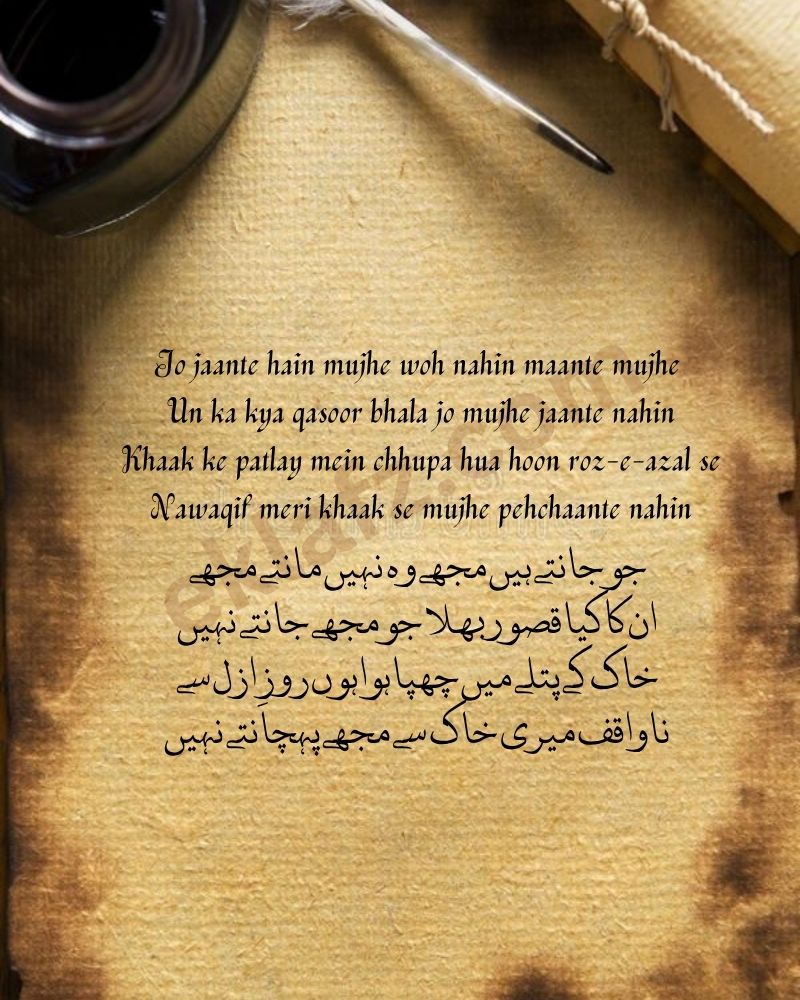 Jo jaante hain mujhe woh nahin maante mujhe
Un ka kya qasoor bhala jo mujhe jaante nahin
Khaak ke patlay mein chhupa hua hoon roz-e-azal se
Nawaqif meri khaak se mujhe pehchaante nahin
جو جانتے ہیں مجھے وہ نہیں مانتے مجھے
ان کا کیا قصور بھلا جو مجھے جانتے نہیں
خاک کے پتلے میں چھپا ہوا ہوں روزِ ازل سے
ناواقف میری خاک سے مجھے پہچانتے نہیں